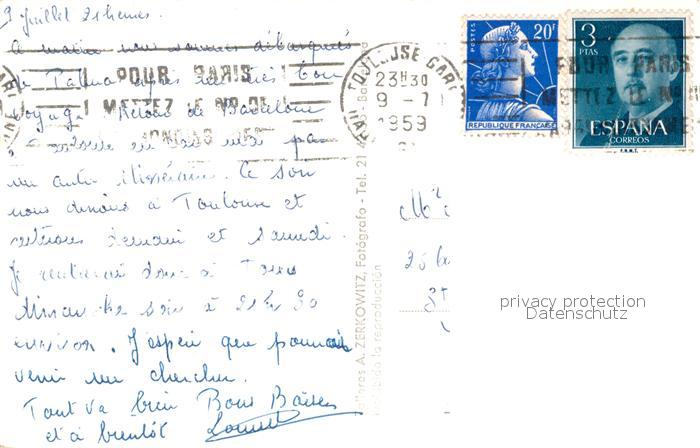 9 Juillet 21 heures.
ce matin nous sommes débarqués
de Palma après un très bon
voyage. Retour de Barcelone
par
un autre itinéraire. Ce soir
nous dînons à Toulouse et
rentrons demain et samedi.
Je rentrerai donc à Tours
Dimanche soir à 21h 30
environ. J'espère que pourras
venir me chercher.
Tout va bien Bons Baisers
et à bientôt
POUR PARIS
METTEZ LE No DE
TOULOUSE GARE
23H30
9-7
1959
POSTES
20F
REPUBLIQUE FRANÇAISE
3
PTAS
ESPAÑA
CORREOS
F.N.M.T.
POUR PARIS
METTEZ LE No
A. ZERKOWITZ, Fotógrafo - Tel. 21
la reproducción
26
privacy protection
Datenschutz